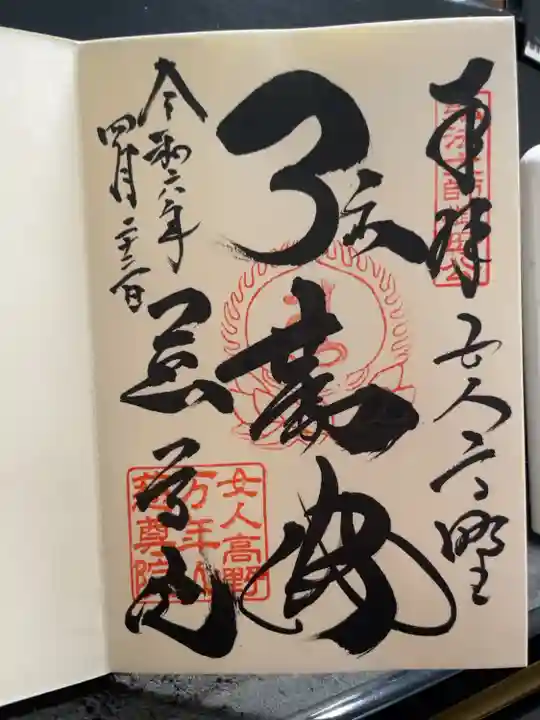 奉拝
女人高野
弘法大師御母公
弥勒
令和六年
四月二十三日
慈尊院
女人高野
万年山
慈尊院